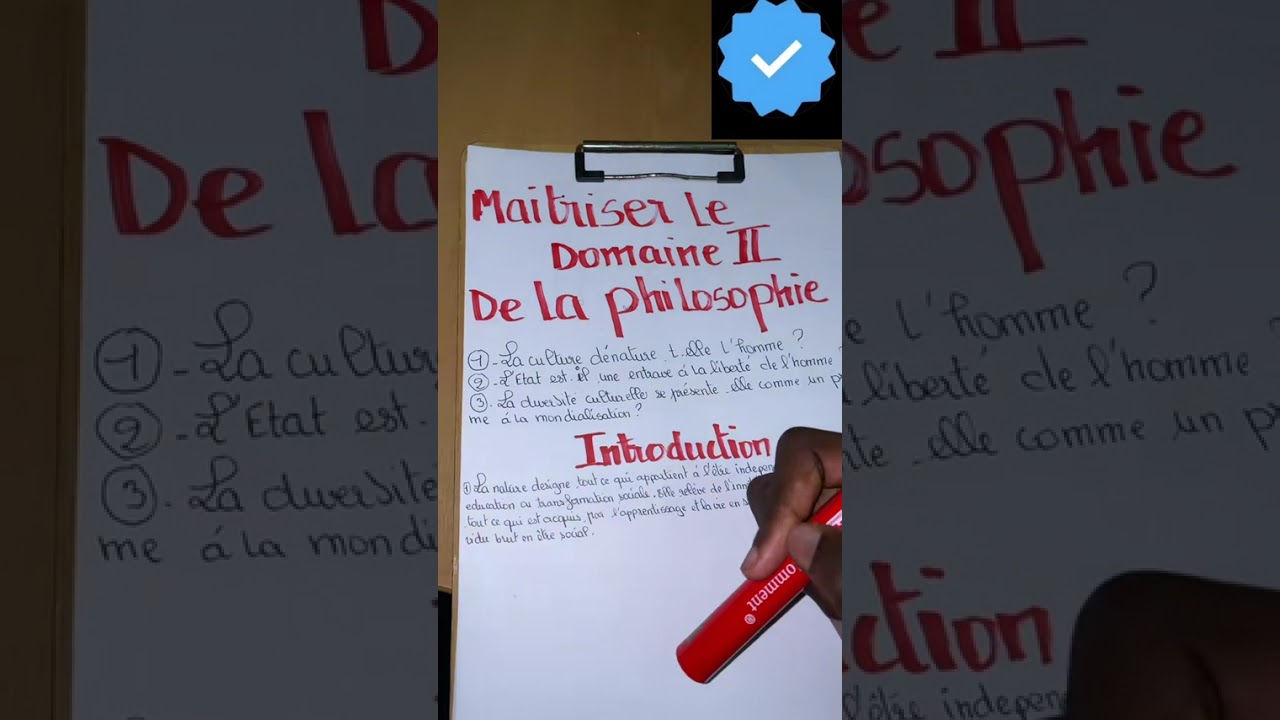 Maitriser le
Domaine II
De la philosophie
1 - La culture dénature-t-elle l'homme ?
2 - L'Etat est-il une entrave á la liberté de l'homme
3 - La diversité culturelle se présente-elle comme un p
me á la mondialisation ?
Introduction
1 La nature designe tout ce qui appartient á l'être indepen
education ou transformation sociale. Elle relève de l'inn
tout ce qui est acquis par l'apprentissage et la vie en s
vidu brut en être social.
omment ®